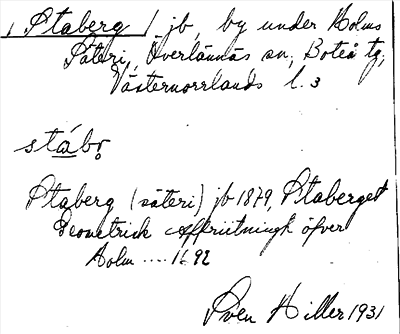 Staberg / jb, by under Holms
Säteri, Överlännäs sn, Boteå tg,
Västernorrlands l. 3
stábọ
Staberg (säteri) jb 1879, Staberget
Geometrisk Affriitningh öfver
Holm .... 1692
Sven Hiller 1931